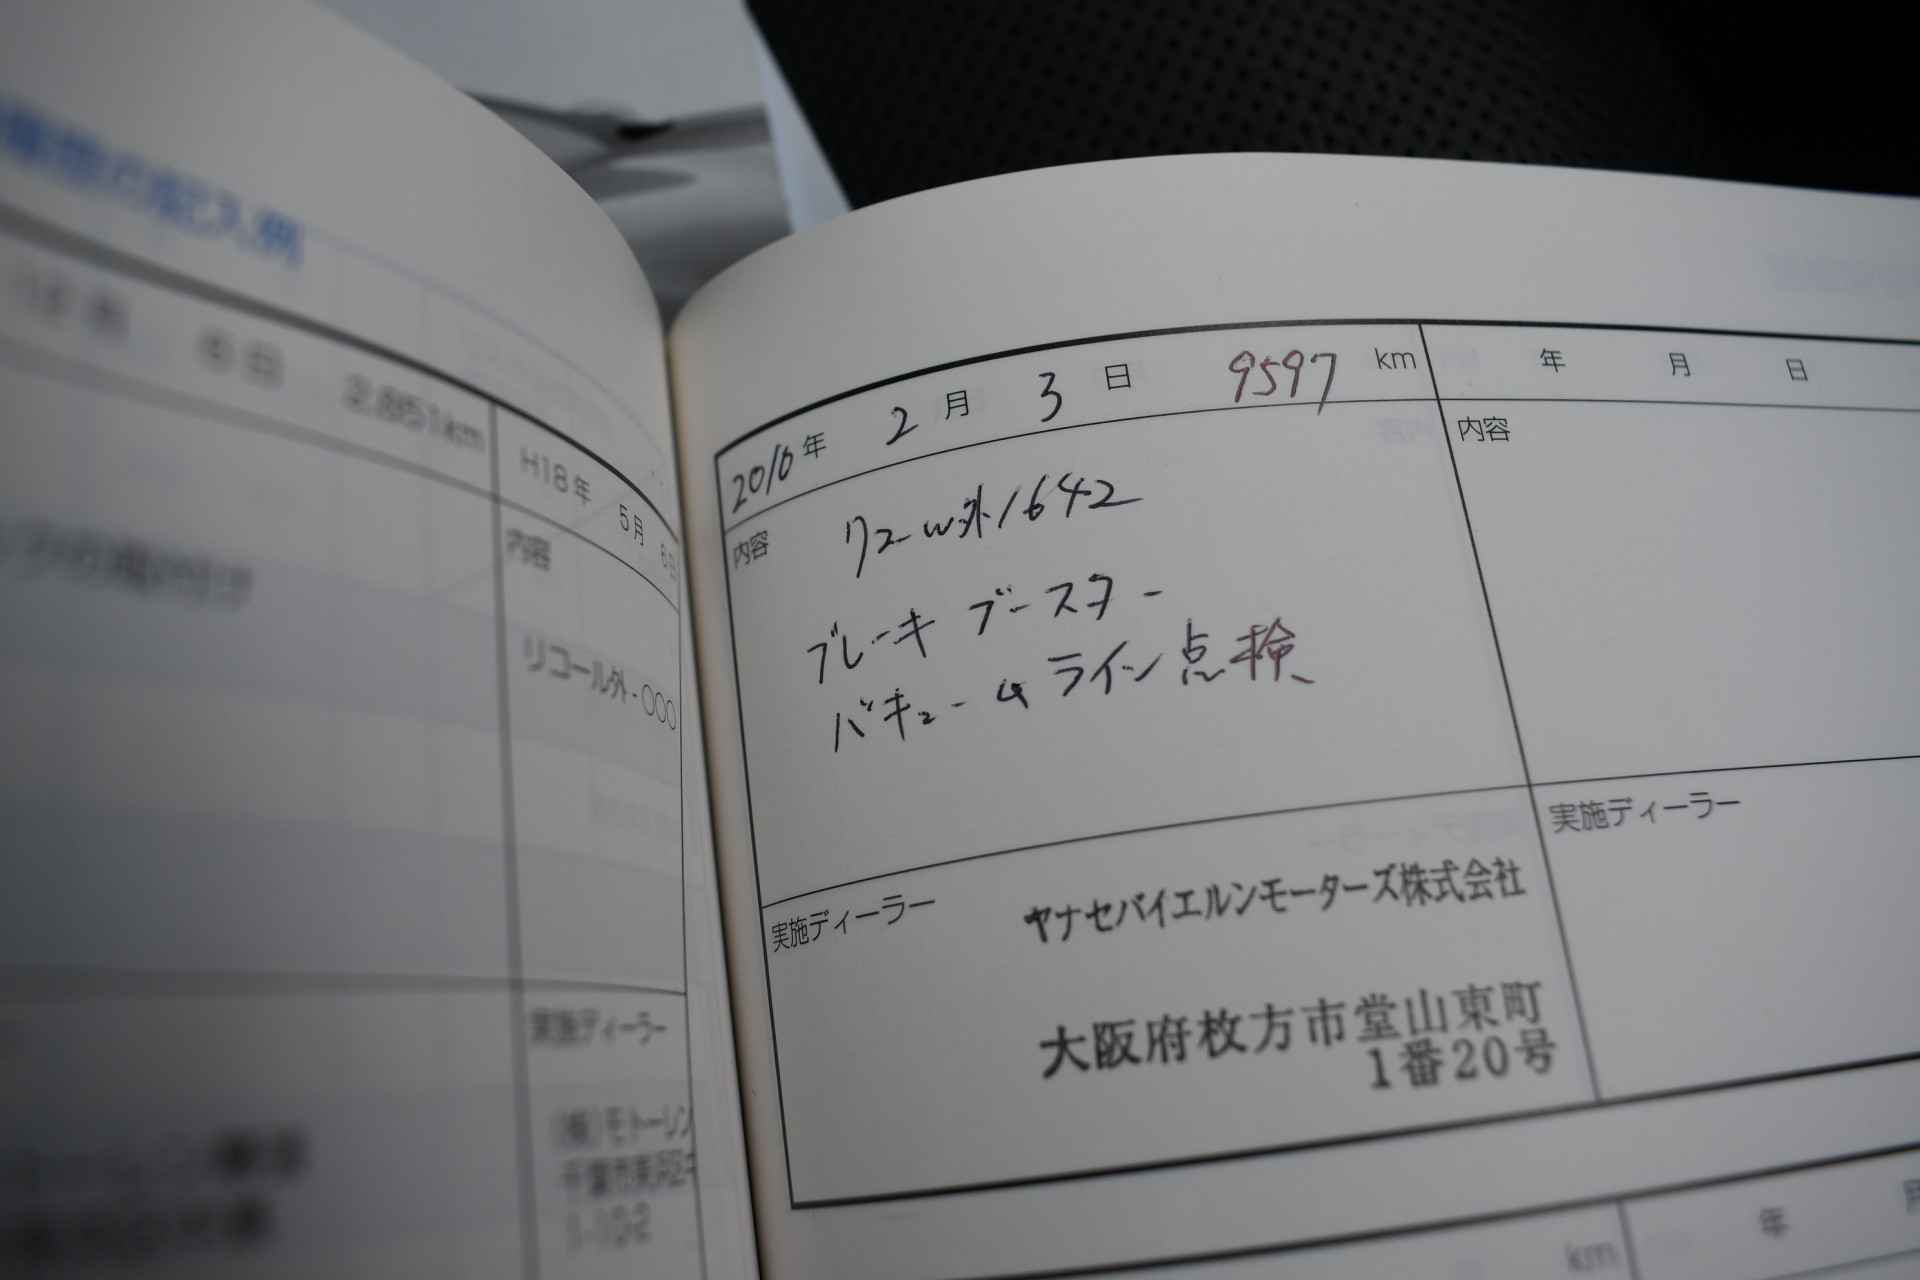 の記入例
2,851km
H18年 5月 6日
内容
リコール外-〇〇〇
実施ディーラー
(株)モトーレン
千葉市美浜区中
1-10-2
2010年 2月 3日 9597 km
内容
リコール外1642
ブレーキ ブースター
バキュームライン点検
実施ディーラー
ヤナセバイエルンモーターズ株式会社
大阪府枚方市堂山東町
1番20号
年 月 日
内容
実施ディーラー
km
年 月